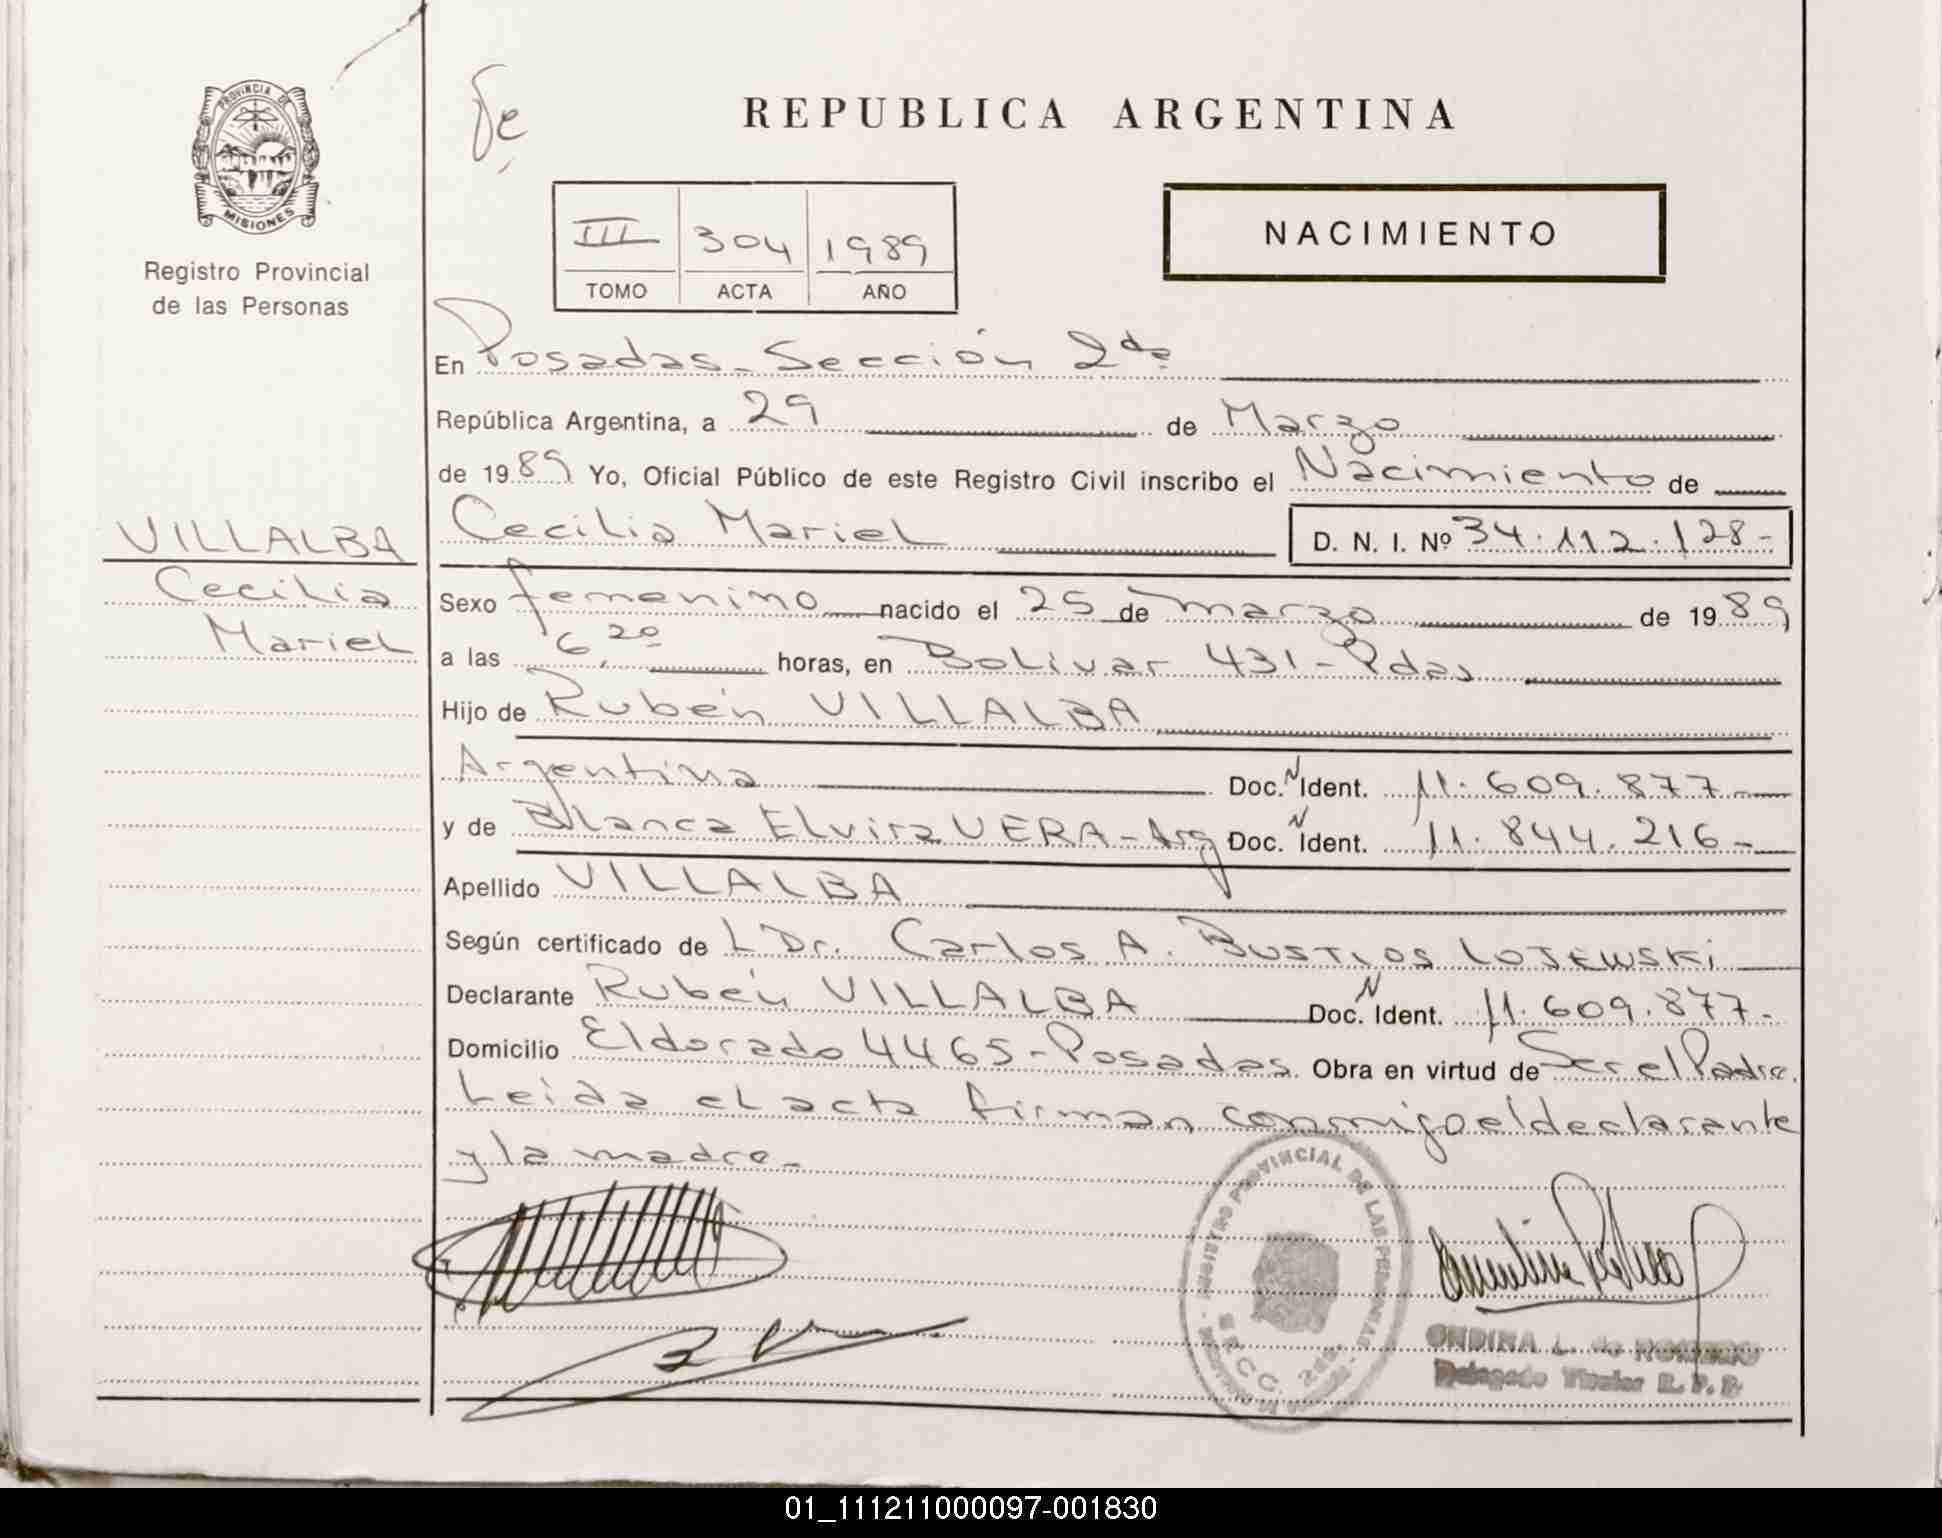 PROVINCIA DE
MISIONES
Registro Provincial
de las Personas
REPUBLICA ARGENTINA
NACIMIENTO
III 304 1989
TOMO ACTA AÑO
En Posadas - Sección 2da
República Argentina, a 29 de Marzo
de 1989 Yo, Oficial Público de este Registro Civil inscribo el Nacimiento de
VILLALBA
Cecilia
Mariel
Cecilia Mariel D. N. I. Nº 34.112.128-
Sexo femenino nacido el 25 de marzo de 1989
a las 6,20 horas, en Bolivar 431 - Pdas
Hijo de Rubén VILLALBA
Argentina Doc. N Ident. 11.609.877-
y de Blanca Elvira VERA - Arg Doc. N Ident. 11.844.216-
Apellido VILLALBA
Según certificado de L Dr. Carlos A. BUSTLOS LOJEWSKI
Declarante Rubén VILLALBA Doc. N Ident. 11.609.877-
Domicilio Eldorado 4465 - Posadas. Obra en virtud de Ser el Padre.
Leida el acta firman conmigo el declarante
y la madre -
REGISTRO PROVINCIAL DE LAS PERSONAS
ONDINA L. de ROMERO
Delegado Titular R. P. P.
01_111211000097-001830